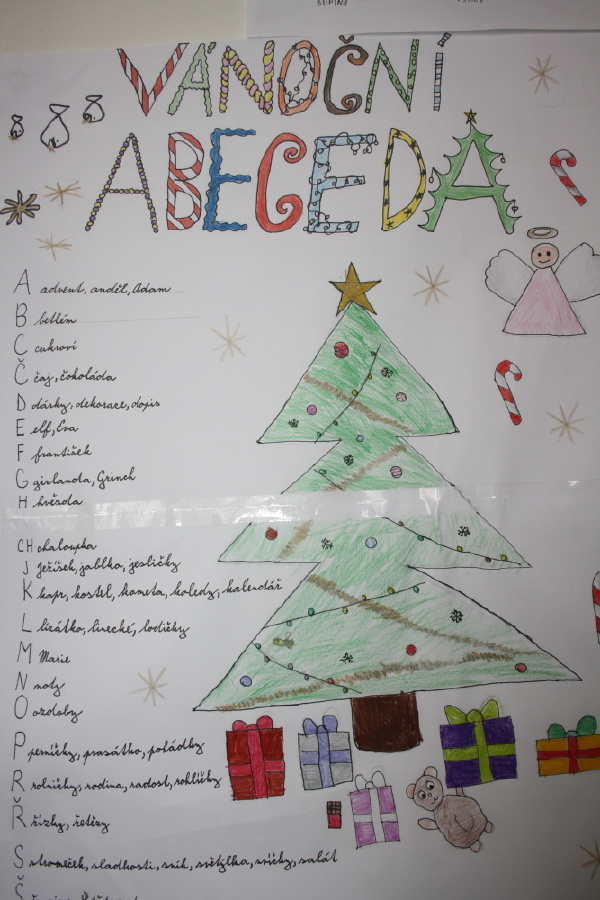 ŠUPINA
VÁNOČNÍ
ABECEDA
A advent, anděl, Adam
B betlém
C cukroví
Č čaj, čokoláda
D dárky, dekorace, dopis
E elf, Eva
F františek
G girlanda, Grinch
H hvězda
CH chaloupka
J Ježíšek, jablko, jesličky
K kapr, kostel, kometa, koledy, kalendář
L lízátko, linecké, lodičky
M Marie
N noty
O ozdoby
P perníčky, prasátko, pohádky
R rolničky, rodina, radost, rohlíčky
Ř řízky, řetězy
S stromeček, sladkosti, sníh, světýlka, svíčky, salát
Š